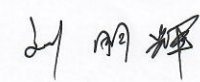 刘明辉